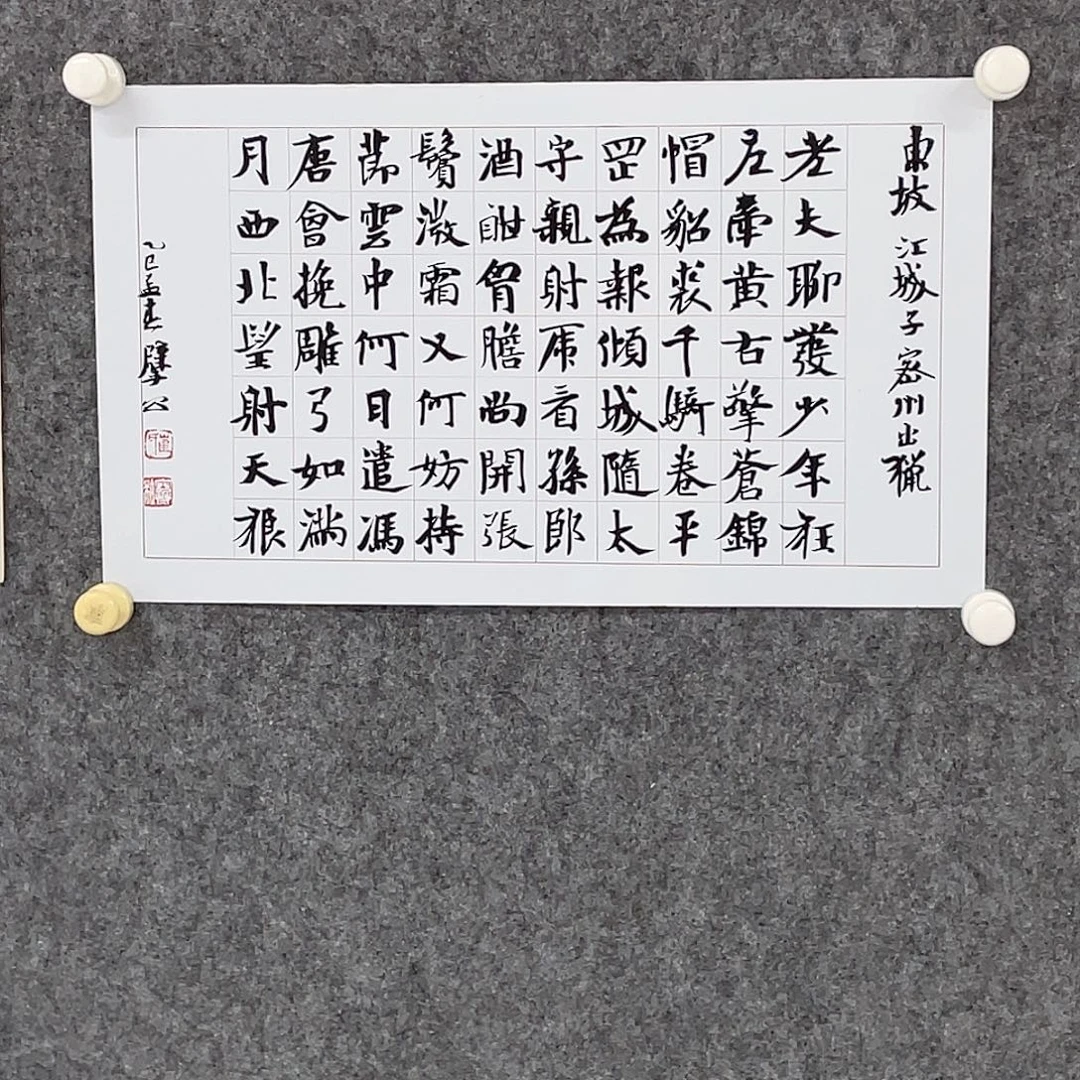 東坡 江城子 密州出獵
老夫聊發少年狂
左牽黃右擎蒼錦
帽貂裘千騎卷平
罡為報傾城隨太
守親射虎看孫郎
酒酣胷膽尚開張
鬢微霜又何妨持
節雲中何日遣馮
唐會挽雕弓如滿
月西北望射天狼
乙巳孟春 擘公